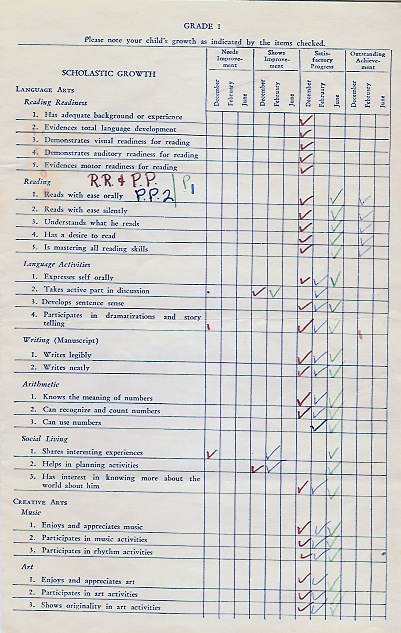 GRADE 1
Please note your child's growth as indicated by the items checked.
Needs Improve-ment
Shows Improve-ment
Satis-factory Progress
Outstanding Achieve-ment
SCHOLASTIC GROWTH
December February June December February June December February June December February June
LANGUAGE ARTS
Reading Readiness
1. Has adequate background or experience
2. Evidences total language development
3. Demonstrates visual readiness for reading
4. Demonstrates auditory readiness for reading
5. Evidences motor readiness for reading
Reading R.R. & P.P. P1
1. Reads with ease orally P.P.2
2. Reads with ease silently
3. Understands what he reads
4. Has a desire to read
5. Is mastering all reading skills
Language Activities
1. Expresses self orally
2. Takes active part in discussion
3. Develops sentence sense
4. Participates in dramatizations and story
telling
Writing (Manuscript)
1. Writes legibly
2. Writes neatly
Arithmetic
1. Knows the meaning of numbers
2. Can recognize and count numbers
3. Can use numbers
Social Living
1. Shares interesting experiences
2. Helps in planning activities
3. Has interest in knowing more about the
world about him
CREATIVE ARTS
Music
1. Enjoys and appreciates music
2. Participates in music activities
3. Participates in rhythm activities
Art
1. Enjoys and appreciates art
2. Participates in art activities
3. Shows originality in art activities